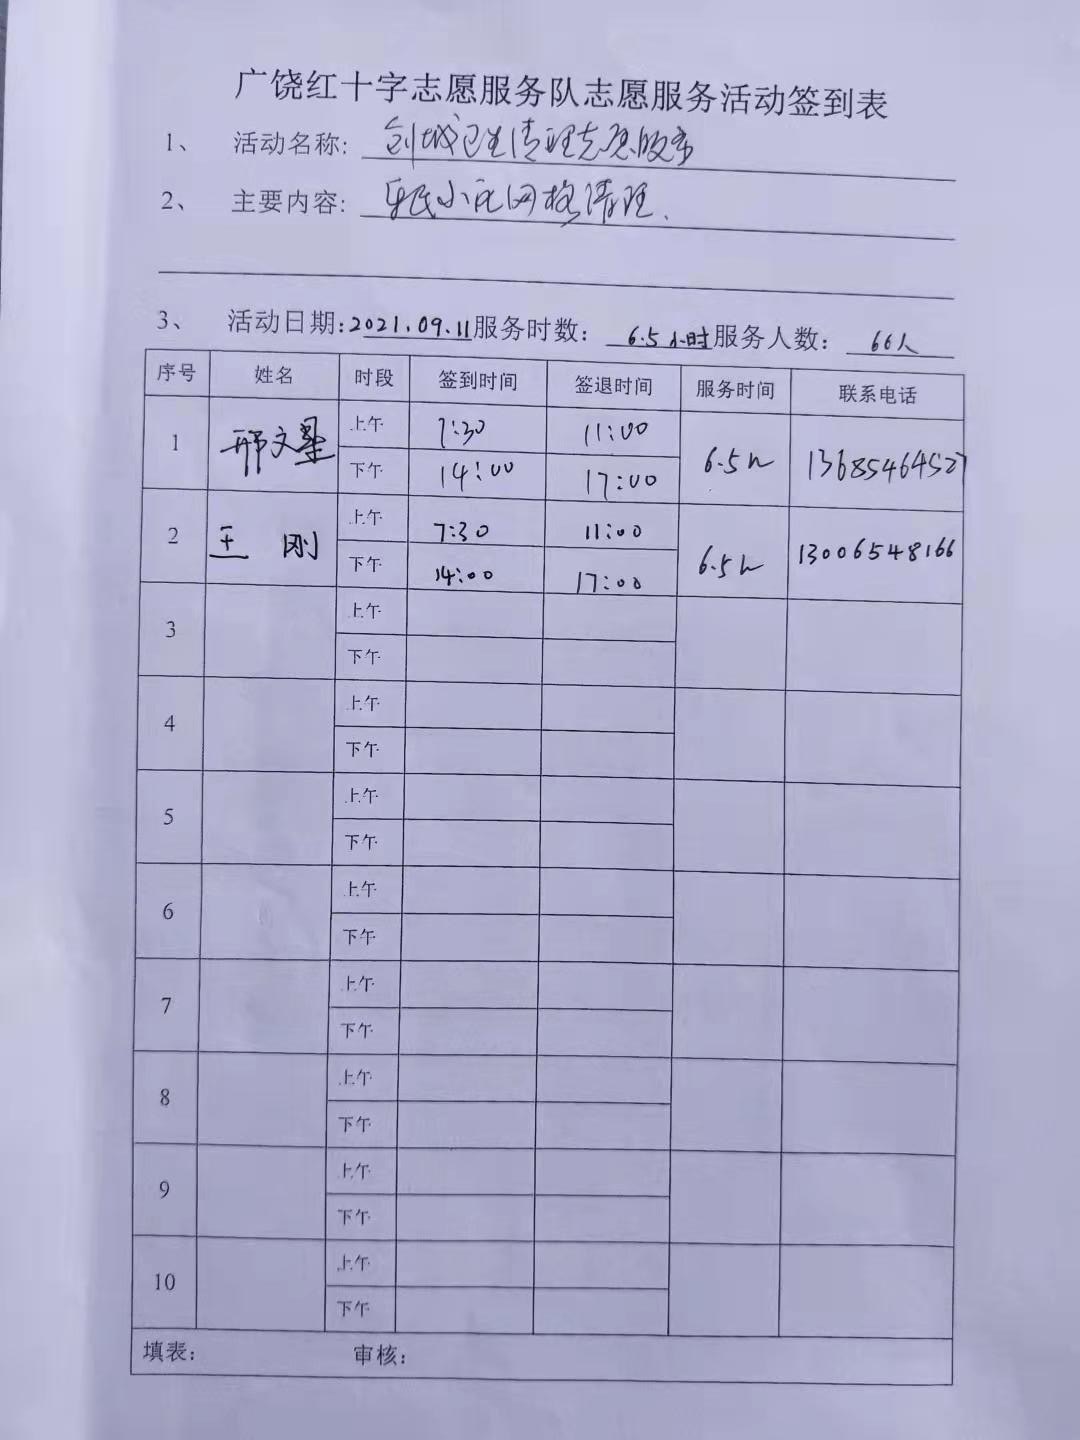 广饶红十字志愿服务队志愿服务活动签到表
1、 活动名称: 创城卫生清理志愿服务
2、 主要内容: 乐民小区网格清理.
3、 活动日期:2021.09.11服务时数: 6.5小时服务人数: 66人
序号 姓名 时段 签到时间 签退时间 服务时间 联系电话
1 邢文 上午 7:30 11:00 6.5h 13685464527
下午 14:00 17:00
2 王 刚 上午 7:30 11:00 6.5h 13006548166
下午 14:00 17:00
3 上午
下午
4 上午
下午
5 上午
下午
6 上午
下午
7 上午
下午
8 上午
下午
9 上午
下午
10 上午
下午
填表: 审核: